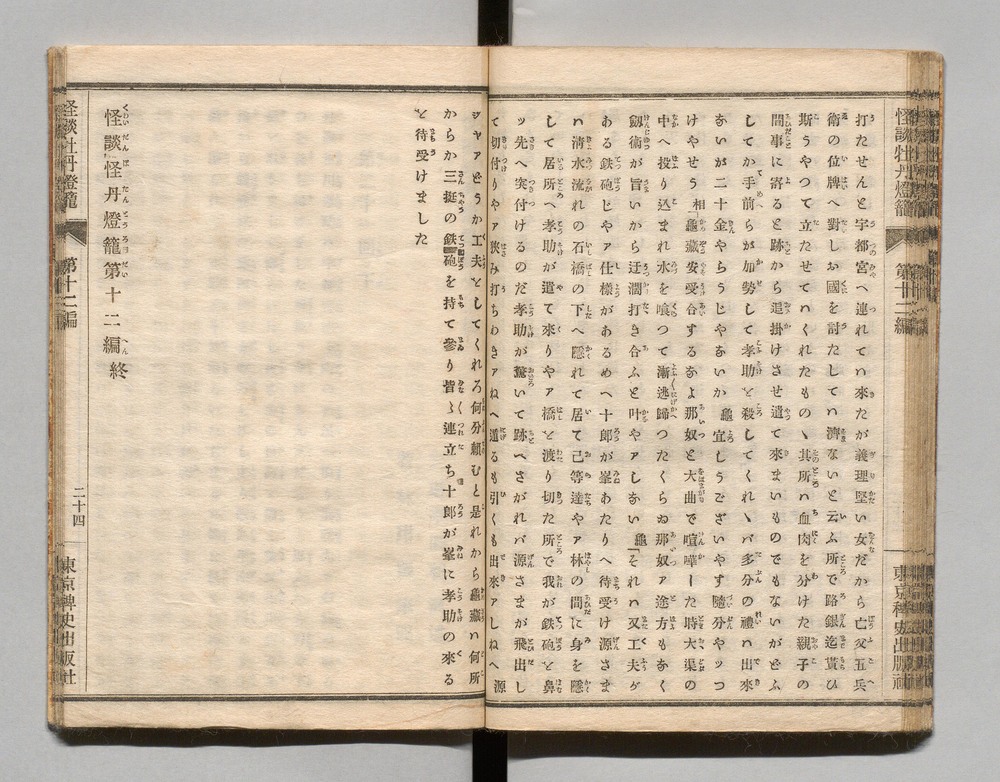 怪談牡丹燈籠　第十二編　東京稗史出版社
打たせんと宇都宮へ連れてハ來たが義理堅い女だから亡父五兵
衛の位牌へ對しお國を討たしてハ濟ないと云ふ所で路銀迄貰ひ
斯うやつて立たせてハくれたものゝ其所ハ血肉を分けた親子の
間事に寄ると跡から追掛けさせ遣て來まいものでもないがどふ
してか手前らが加勢して孝助を殺してくれゝバ多分の禮ハ出來
ないが二十金やらうじやないか 龜 宜しうございやす隨分やツつ
けやせう 相「龜藏安受合するなよ那奴と大曲で喧嘩した時大渠の
中へ投り込まれ水を喰つて漸逃歸つたくらゐ那奴ァ途方もなく
劔術が旨いから迂濶打き合ふと叶やァしない 龜「それハ又工夫が
ある鉄砲じやァ仕様があるめへ十郎が峯あたりへ待受け源さま
ハ淸水流れの石橋の下へ隱れて居て己等達やァ林の間に身を隱
して居る所へ孝助が遣て來りやァ橋を渡り切た所で我が鉄砲を鼻
ツ先へ突付けるのだ孝助が驚いて跡へさがれバ源さまが飛出し
て切付けりやァ挾み打ちわきァねへ逃るも引くも出來ァしねへ 源
ジャァどうか工夫をしてくれろ何分頼むと是れから龜藏ハ何所
からか三挺の鉄砲を持て參り皆々連立ち十郎が峯に孝助の來る
を待受けました
怪談怪丹燈籠第十二編終
怪談牡丹燈籠　第十二編　二十四　東京稗史出版社